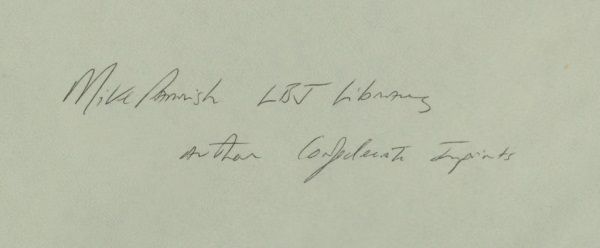 Mike Parrish LBJ Library
Author Confederate Imprints